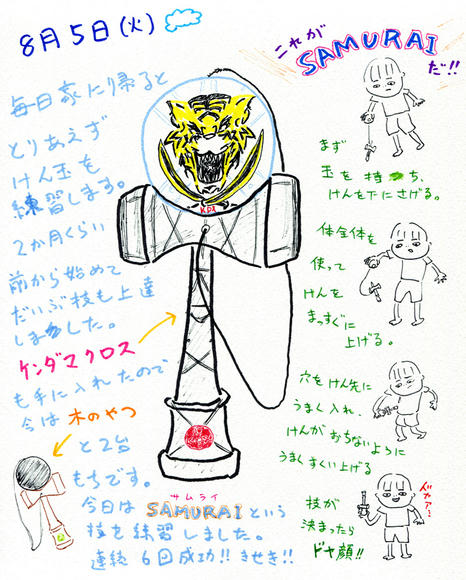 8月5日(火)
毎日家に帰ると
とりあえず
けん玉を
練習します。
2か月くらい
前から始めて
だいぶ技も上達
しました。
ケンダマクロス
も手に入れたので
今は木のやつ
と2台
もちです。
今日は SAMURAIという
サムライ
技を練習しました。
連続6回成功!!きせき!!
KDX
これが
SAMURAI
だ!!
まず
玉を持ち、
けんを下にさげる。
体全体を
使って
けんを
まっすぐに
上げる。
穴をけん先に
うまく入れ、
けんがおちないように
うまくすくい上げる
技が
決まったら
ドヤ顔!!
ドヤァー